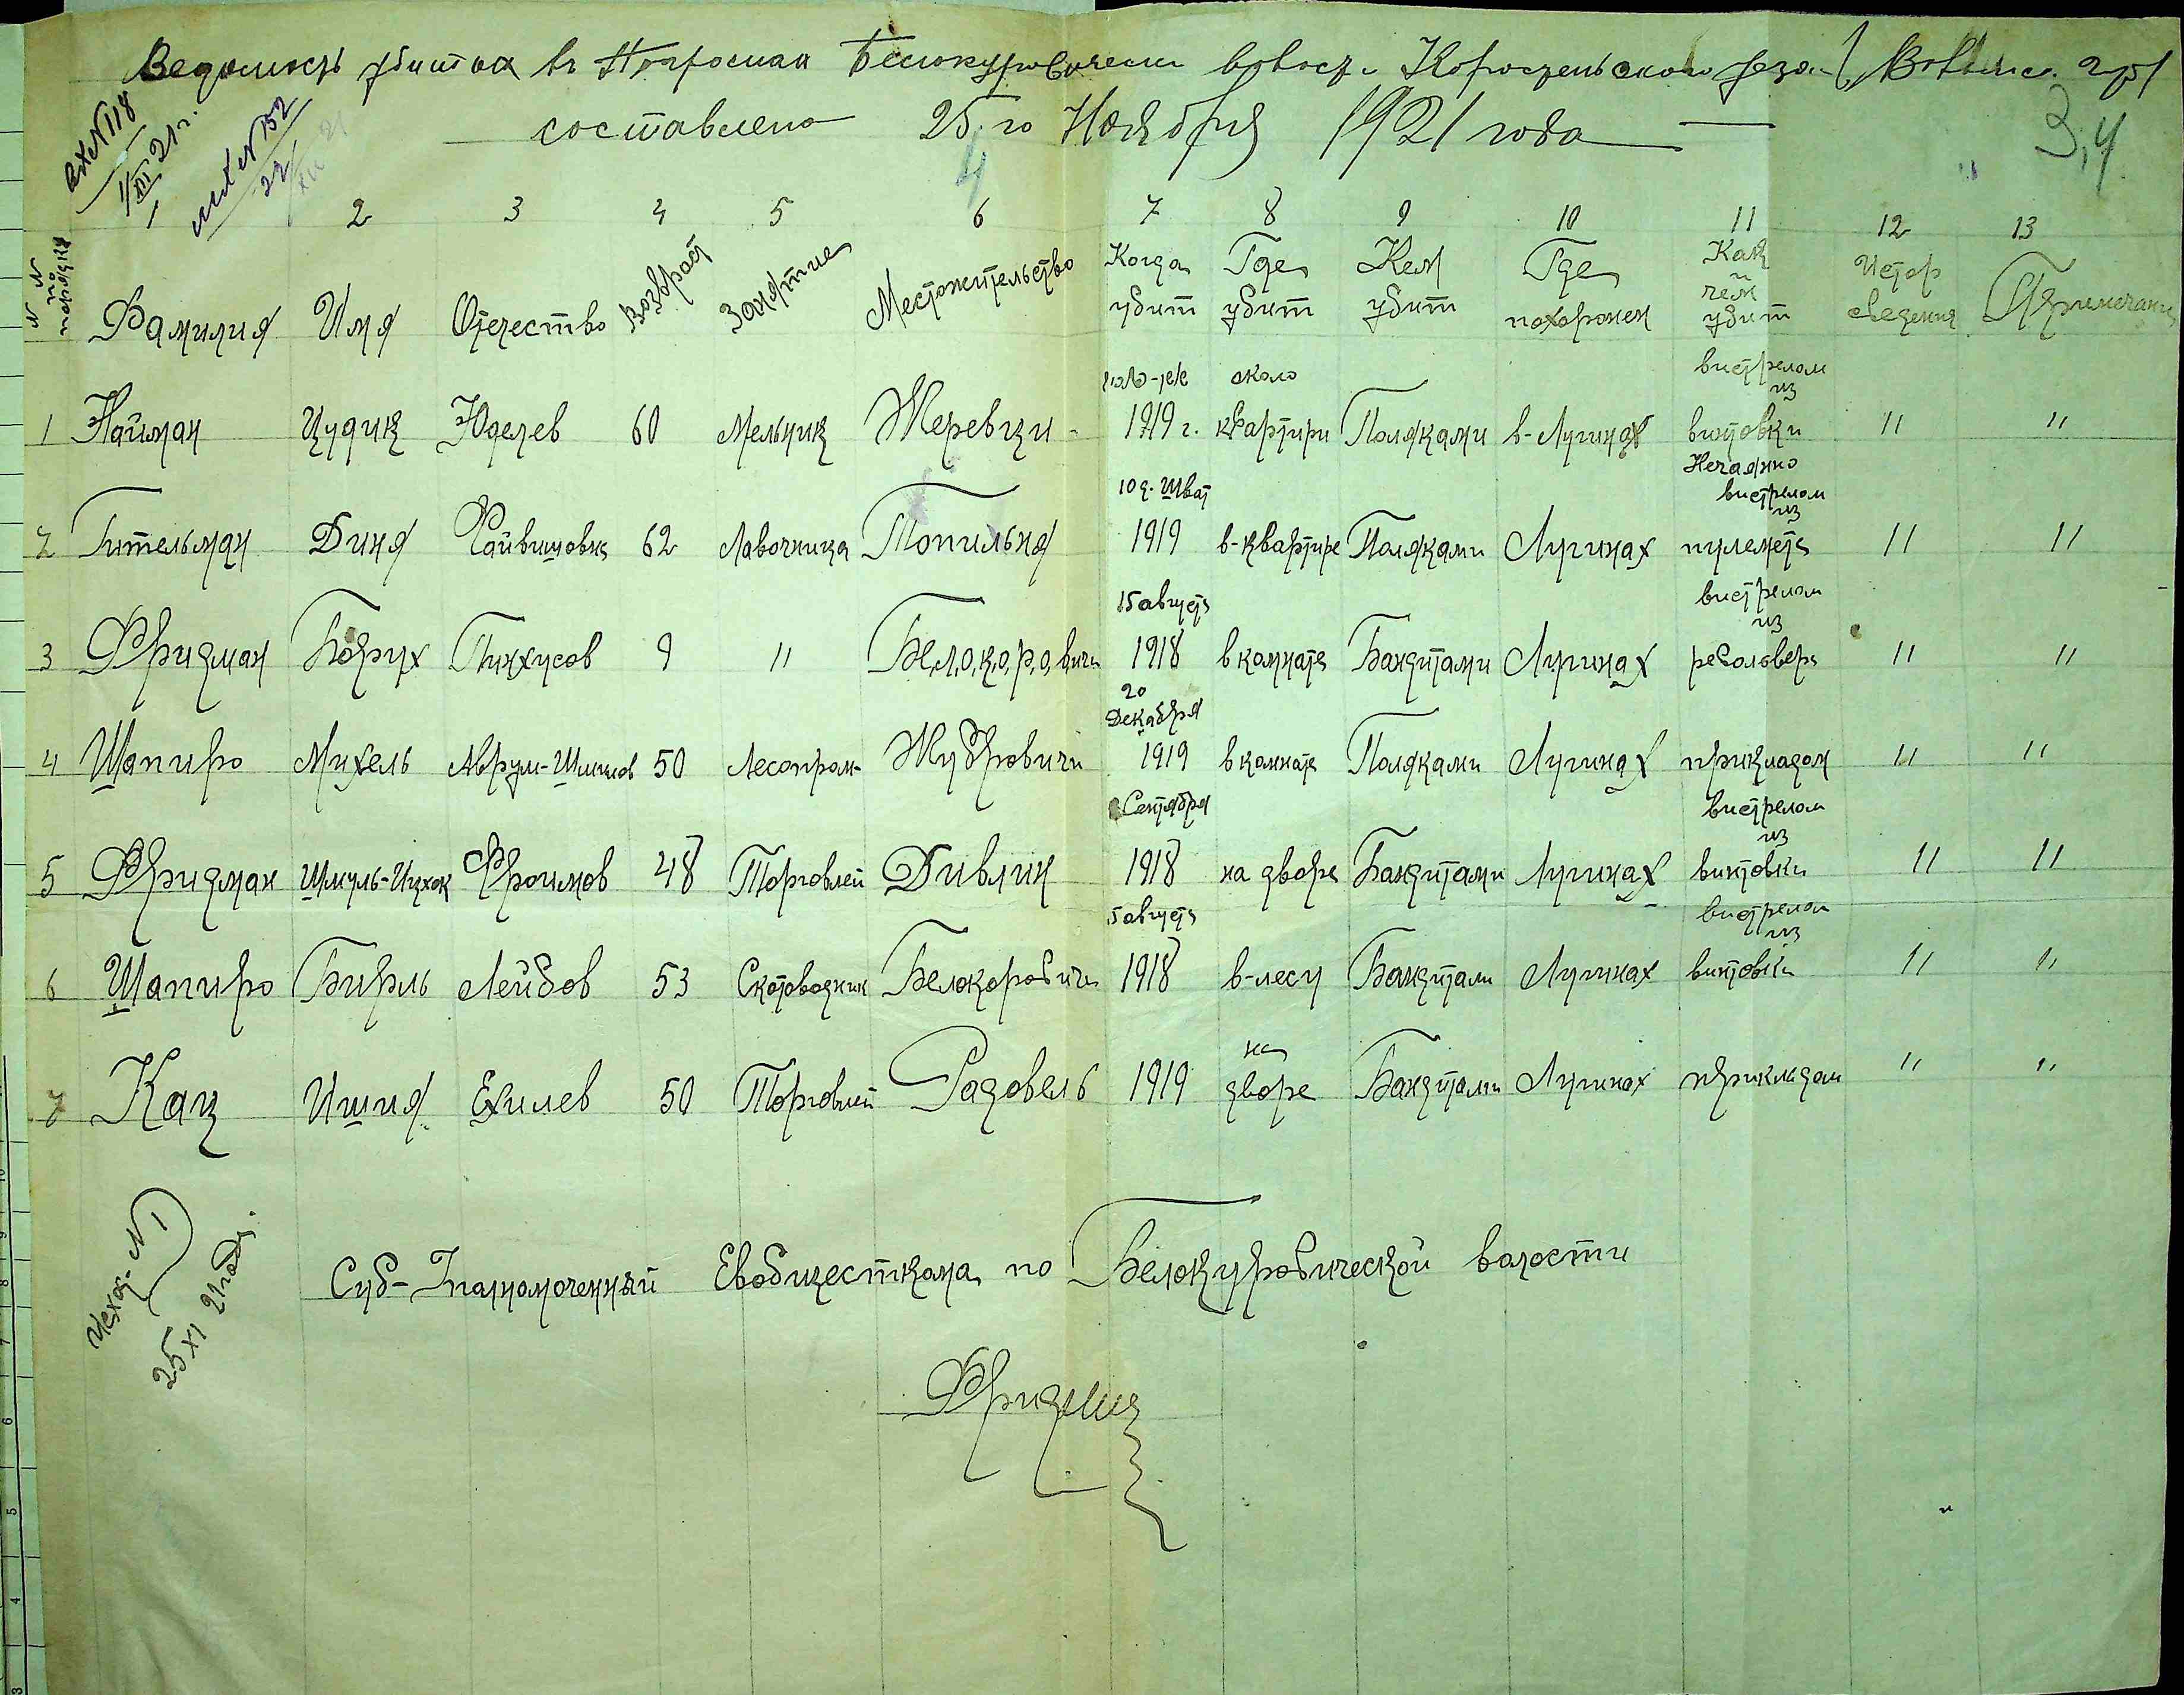 Ведомость убитых въ Погромах Белокуровическ. волости Коростеньского уезда Волынс. губ
составлено 25 го Ноября 1921 года
вх №118
1/XII 21 г.
исх №152
22/XII 21
3,4
1 2 3 4 5 6 7 8 9 10 11 12 13
№ № по порядку Фамилия Имя Отечество возврост Занятие Местожительство Когда убит Где убит Кем убит Где похоронен Как и чем убит Истор сведения Примечание
1 Найман Цудик Юделев 60 Мельник Жеревци 1919 г. около квартири Поляками в-Лугинах вистрелом из винтовки " "
2 Гительман Диня Файвишовна 62 Лавочница Топильня 10 д. Шват 1919 в-квартире Поляками Лугинах Нечаянно вистрелом из пулемета " "
3 Фридман Борух Пинхусов 9 " Белокоровичи 15 августа 1918 в комнате Бандитами Лугинах вистрелом из револьвера " "
4 Шапиро Михель Аврум-Шлимов 50 Лесопром- Жубровичи 20 Декабря 1919 в комнате Поляками Лугинах прикладом " "
5 Фридман Шмуль-Ицхок Фроимов 48 Торговлей Дивлин Сентября 1918 на дворе Бандитами Лугинах вистрелом из винтовки " "
6 Шапиро Бирль Лейбов 53 Скотоводник Белокоровичи 5 августа 1918 в-лесу Бандитами Лугинах вистрелом из винтовки " "
7 Кац Ишия Ехилев 50 Торговлей Радовель 1919 на дворе Бандитами Лугинах прикладом " "
Исход- № 1
25 XI 21 года.
Суб-Уполномоченный Евобщесткома по Белокуровической волости
Фридман